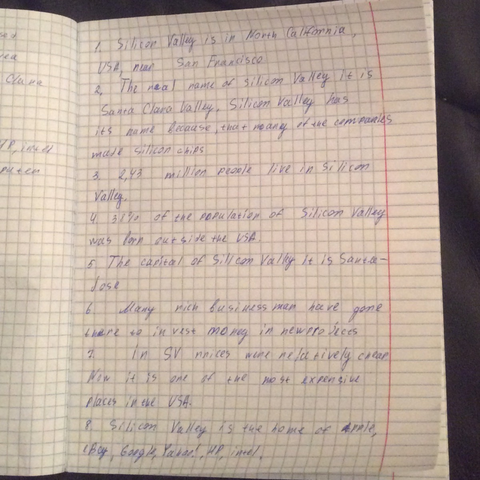 Clara
HP, intel
1. Silicon Valley is in North California,
USA, near San Francisco
2. The real name of Silicon Valley it is
Santa Clara Valley. Silicon Valley has
its name because, that many of the companies
made silicon chips
3. 2,43 million people live in Silicon
Valley.
4. 37% of the population of Silicon Valley
was born outside the USA.
5. The capital of Silicon Valley it is Santa-
Jose
6. Many rich businessman have gone
there so invest money in new projects
7. In SV prices were relatively cheap
Now it is one of the most expensive
places in the USA.
8. Silicon Valley is the home of Apple,
eBay, Google, Yahoo!, HP, intel.